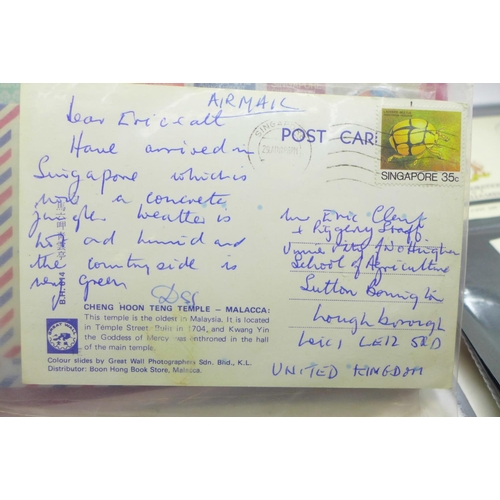 AIRMAIL
Dear Eric & all
Have arrived in
Singapore which is
now a concrete
jungle. Weather is
hot and humid and
the countryside is
very green
POST CAR
SINGAPORE 35c
Mr Eric
+ Piggery Staff
University of Nottingham
School of Agriculture
Sutton Bonington
Loughborough
Leics LE12 5RD
UNITED KINGDOM
B.H. 614
CHENG HOON TENG TEMPLE – MALACCA:
This temple is the oldest in Malaysia. It is located
in Temple Street. Built in 1704, and Kwang Yin
the Goddess of Mercy was enthroned in the hall
of the main temple.
Colour slides by Great Wall Photographers Sdn. Bhd., K.L.
Distributor: Boon Hong Book Store, Malacca.